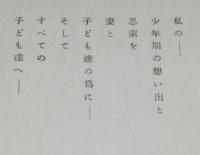 私の――
少年期の想い出と
思索を
妻と
子ども達の為に……
そして
すべての
子ども達へ――